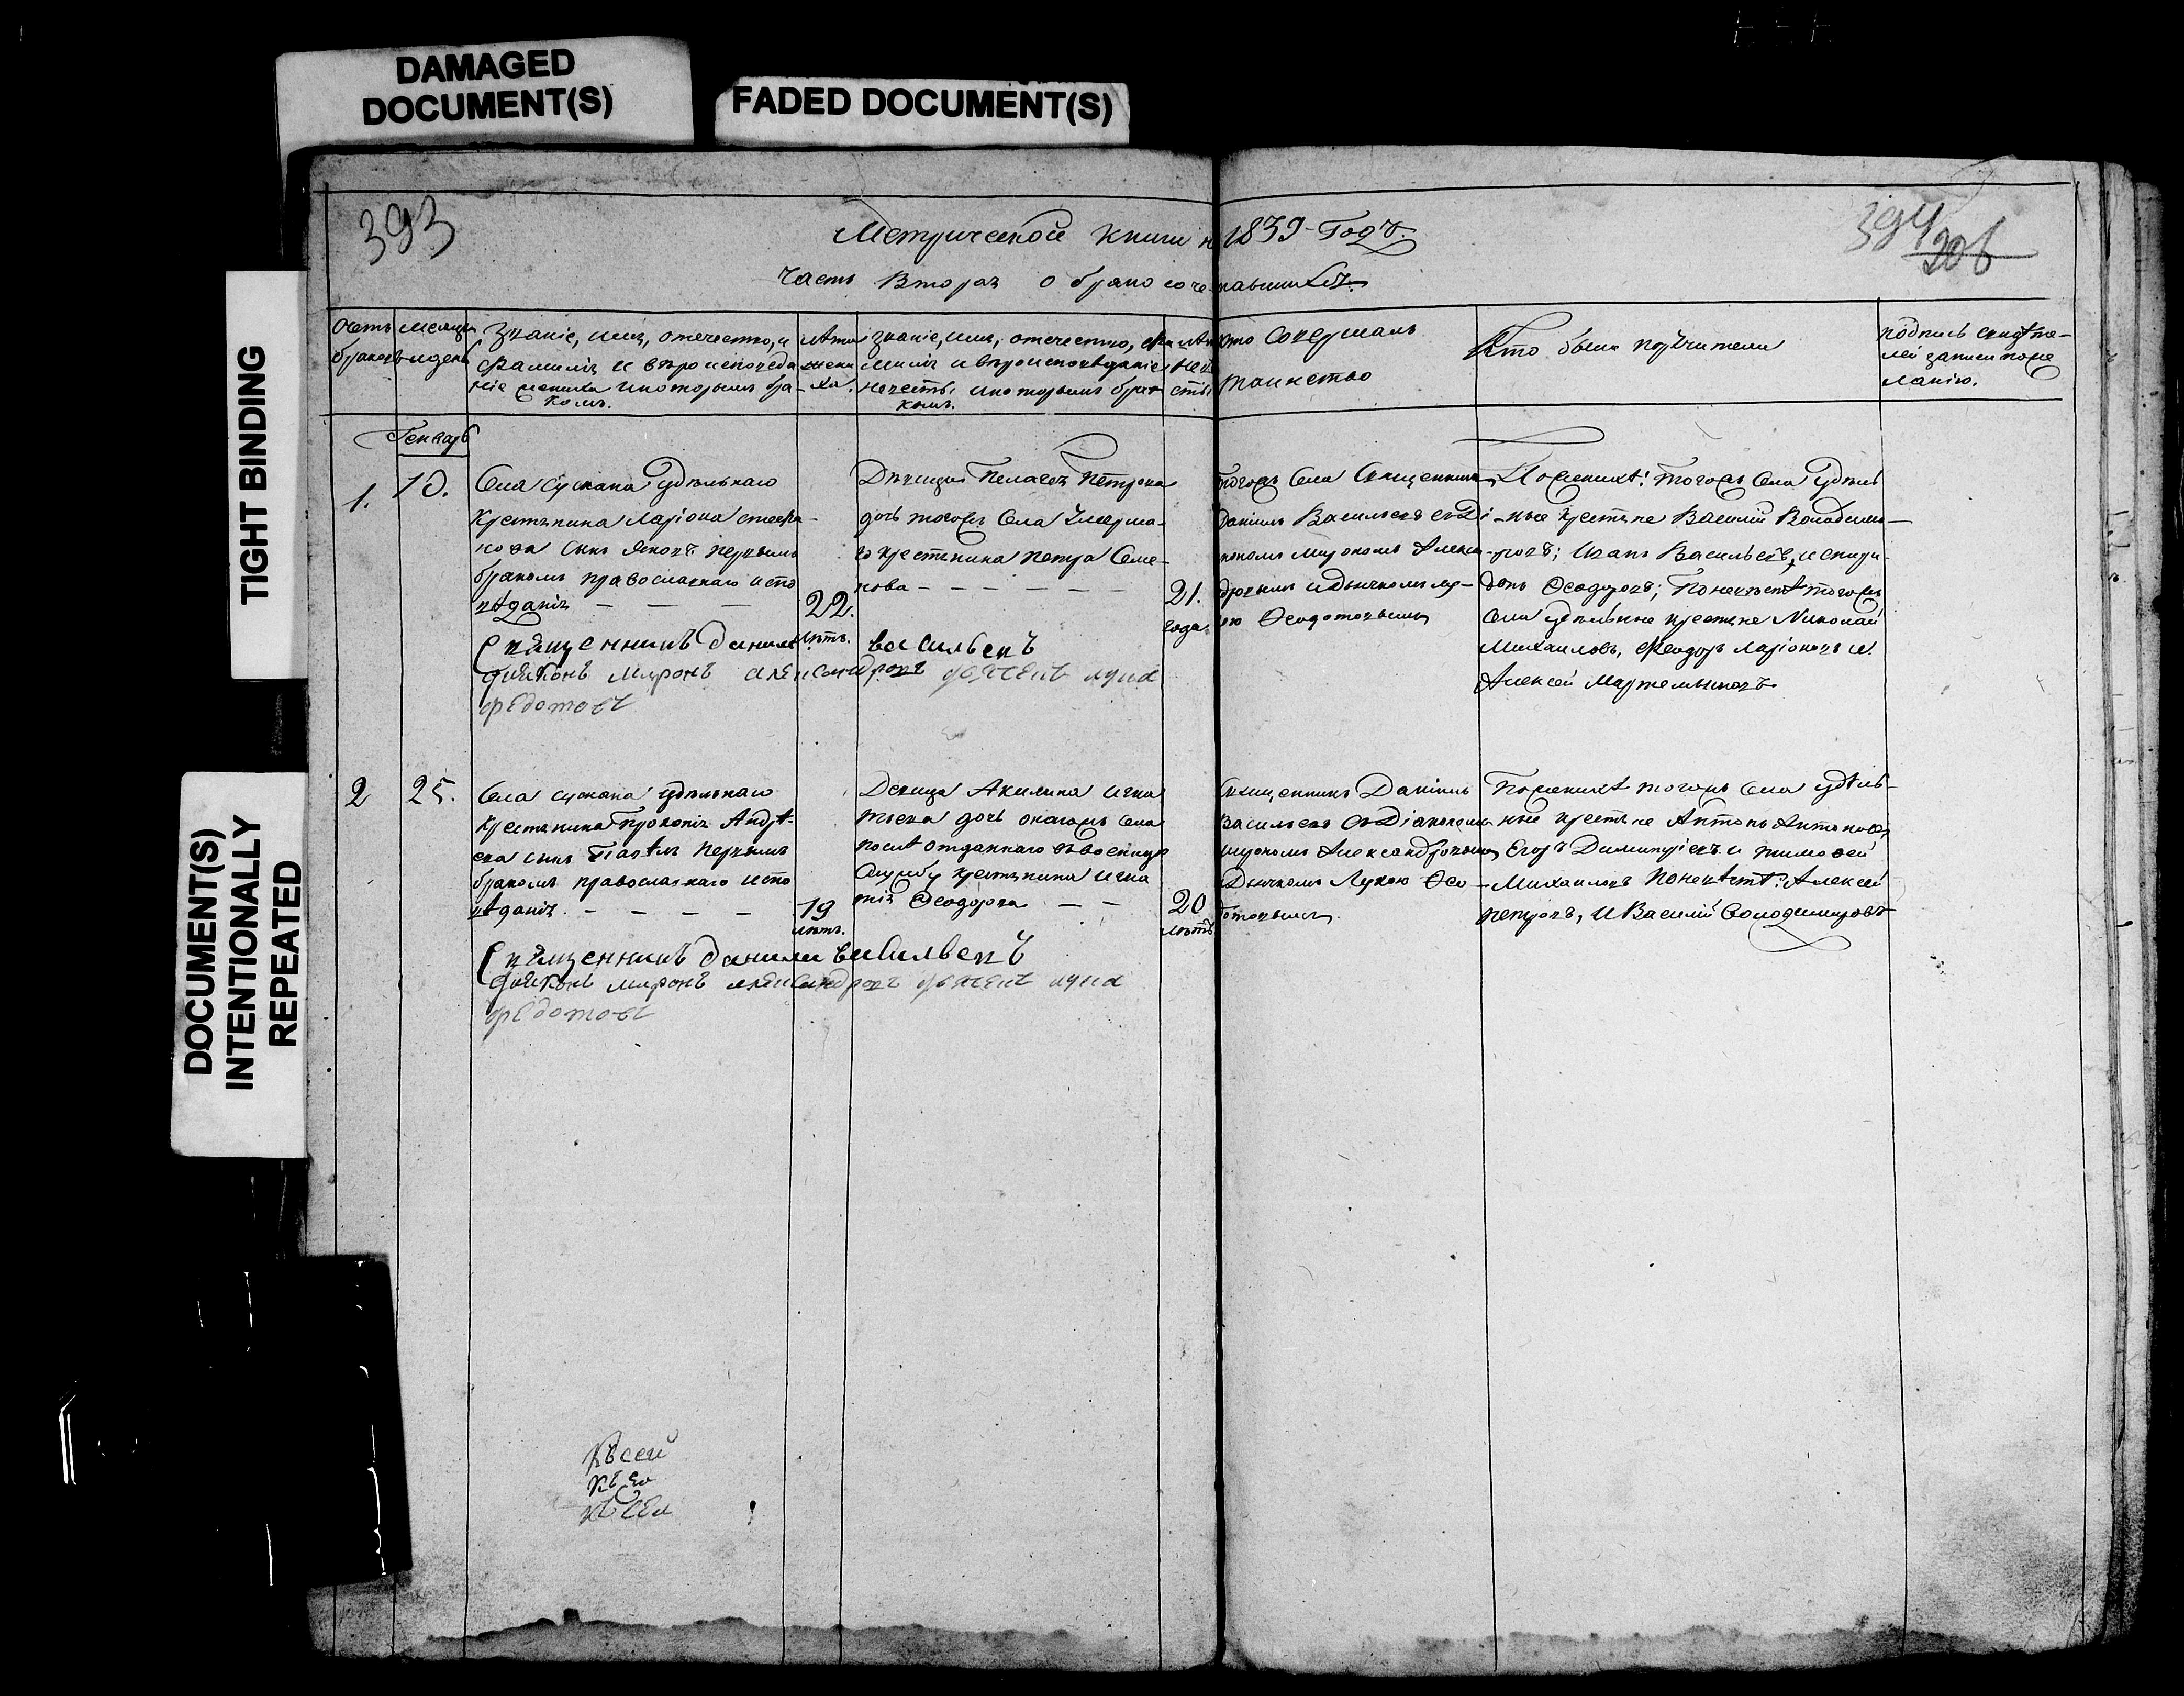 DAMAGED
DOCUMENT(S)
FADED DOCUMENT(S)
TIGHT BINDING
DOCUMENT(S)
INTENTIONALLY
REPEATED
393
394
206
Метрической книги н 1839 Годъ.
Часть Вторая о бракосочетавшихся.
Счетъ браковъ
Месяцъ и день
Званіе, имя, отечество, и
фамилія и вѣроисповеда
ніе жениха и которымъ бра-
комъ.
лѣта
жени
ха.
званіе, имя, отечество, фа
милія и вѣроисповѣданіе
невесты и которымъ бра
комъ.
лѣт
неве
сты
кто совершалъ
таинство
Кто были поручители
подпись свидѣте-
лей записи поже
ланію.
Генварь
1.
10.
Села Сускана Удѣльнаго
крестьянина Ларіона стефа-
нова сынъ Яковъ первымъ
бракомъ православнаго испо
вѣданія
22.
лѣтъ.
Дѣвица Пелагея Петрова
дочь тогожъ Села Умерша-
го крестьянина Петра Семе-
нова
21.
года
тогожъ Села Священникъ
Даніилъ Васильевъ съ Ді-
кономъ Мирономъ Алекса
дровымъ и дьячкомъ лу-
кою Ѳеодотовымъ
По женихѣ: тогожъ Села Удѣль
ные крестьяне Василій Володими-
ровъ; Иванъ Васильевъ, и спири-
донъ Ѳеодоровъ; По невѣстѣ тогожъ
Села удѣльные крестьяне Николай
Михаиловъ, Феодоръ Ларіоновъ и
Алексей Мартемьяновъ
Священникъ Данилъ васильевъ
диаконъ миронъ александровъ дьячекъ лука
федотовъ
2
25.
Села сускана удѣльнаго
крестьянина Прокопія Андрѣ-
ева сынъ Павелъ первымъ
бракомъ православнаго испо
вѣданія
19
лѣтъ.
Девица Акилина игна
тьева дочь онагожъ села
послѣ отданнаго въ военную
Службу крестьянина игна
тія Ѳеодорова
20
лѣтъ
Священникъ Даніилъ
Васильевъ съ Діакономъ
мирономъ Александровымъ
Дьячкомъ Лукою Ѳео
дотовымъ
По женихѣ тогожъ Села удѣль-
ные крестьяне Антонъ Антоновъ
Егоръ Димитріевъ и тимоѳей
Михаиловъ По невѣстѣ: Алексей
петровъ, и Василій Володимировъ
Священникъ данилъ васильевъ
диаконъ миронъ александровъ дьячекъ лука
федотовъ
къ сей
къ сей
къ сей